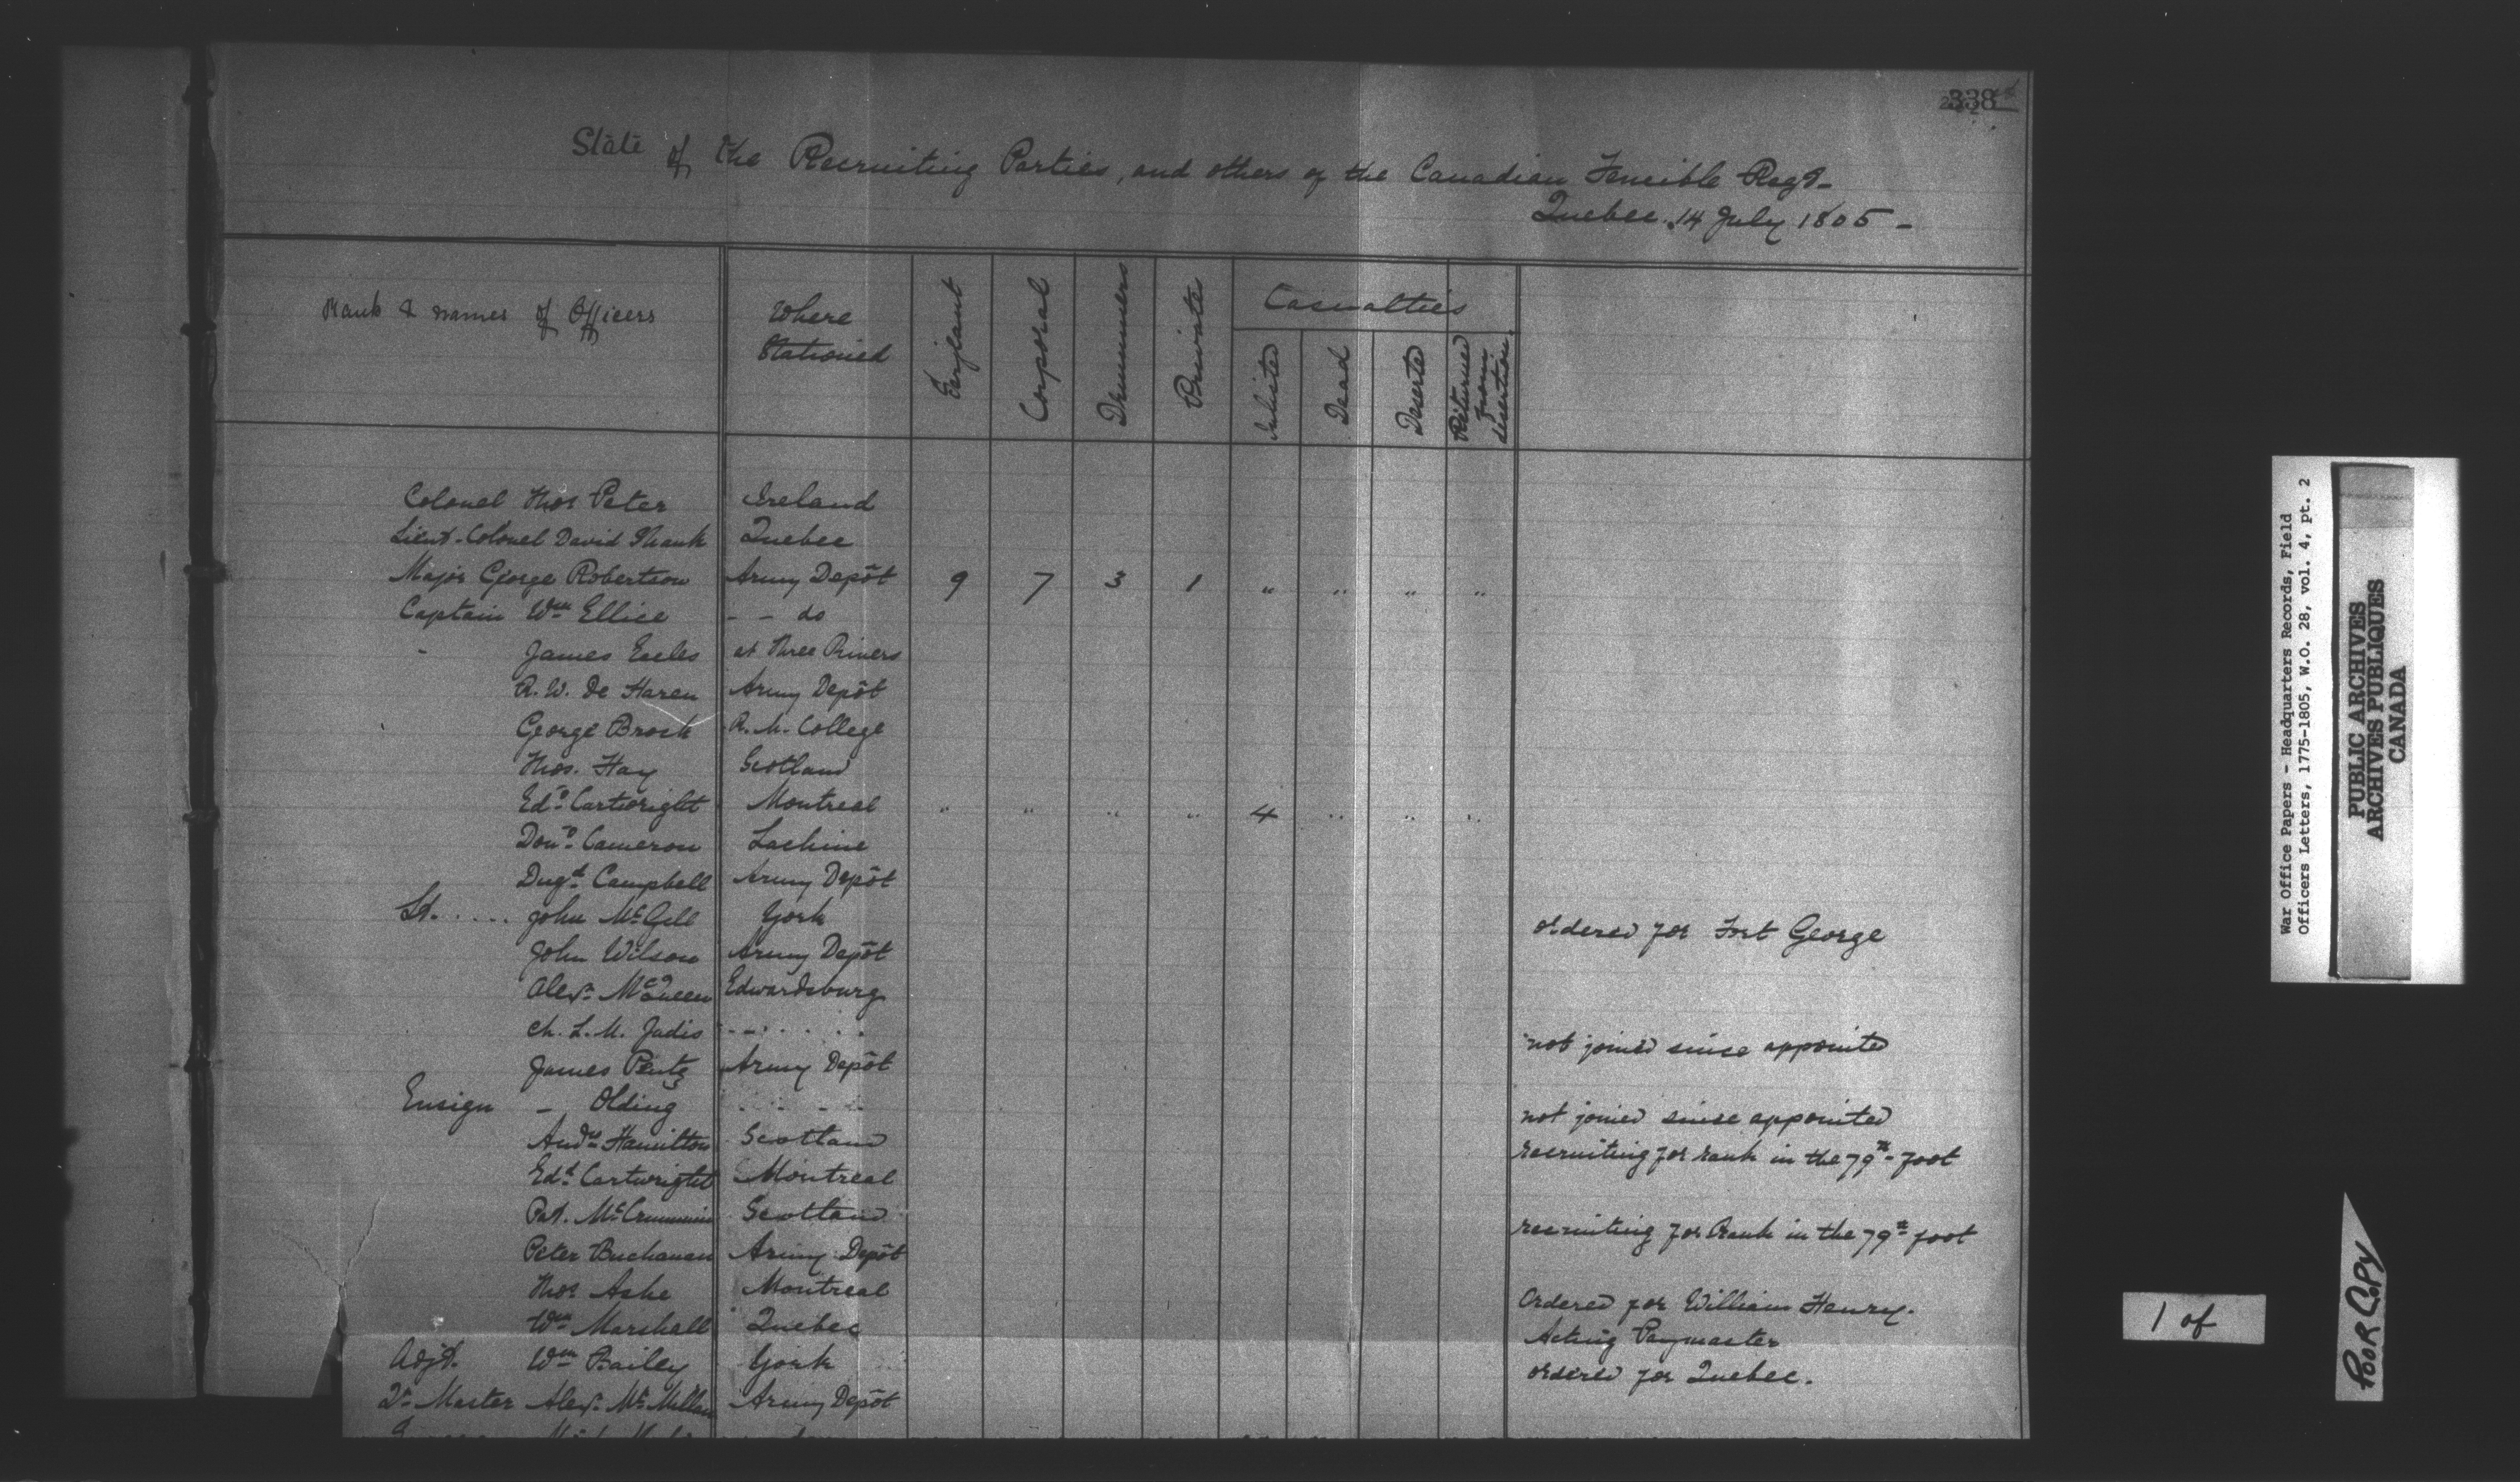 338
State of the Recruiting Parties, and others of the Canadian Fencible Regt-
Quebec. 14 July 1805 -
Rank & names of Officers
Where Stationed
Serjeant
Corporal
Drummers
Private
Casualties
Inlisted
Dead
Deserted
Returned from desertion.
Colonel Thos Peter Ireland
Lieut-Colonel David Shank Quebec
Major George Robertson Army Depôt 9 7 3 1 " " " "
Captain Wm Ellice - - do
James Eccles at Three Rivers
R. W. De Haren Army Depôt
George Brock R. M. College
Thos. Hay Scotland
Edd Cartwright Montreal " " " " 4 " " "
Dond Cameron Lachine
Dugd Campbell Army Depôt
Lt. ..... John McGill York ordered for Fort George
John Wilson Army Depôt
Alexr McQueen Edwardsburg
Ch. L. M. Jadis not joined since appointed
James Pentz Army Depôt
Ensign - Olding not joined since appointed
Andw Hamilton Scotland recruiting for rank in the 79th foot
Edd Cartwright Montreal
Pat. McCrummin Scotland recruiting for Rank in the 79th foot
Peter Buchanan Army Depôt
Thos Ashe Montreal Ordered for William Henry.
Wm Marshall Quebec Acting Paymaster
Adjt. Wm Bailey York ordered for Quebec.
Qr Master Alexr McMillan Army Depôt
War Office Papers - Headquarters Records, Field
Officers Letters, 1775-1805, W.O. 28, vol. 4, pt. 2
PUBLIC ARCHIVES
ARCHIVES PUBLIQUES
CANADA
1 of
POOR COPY